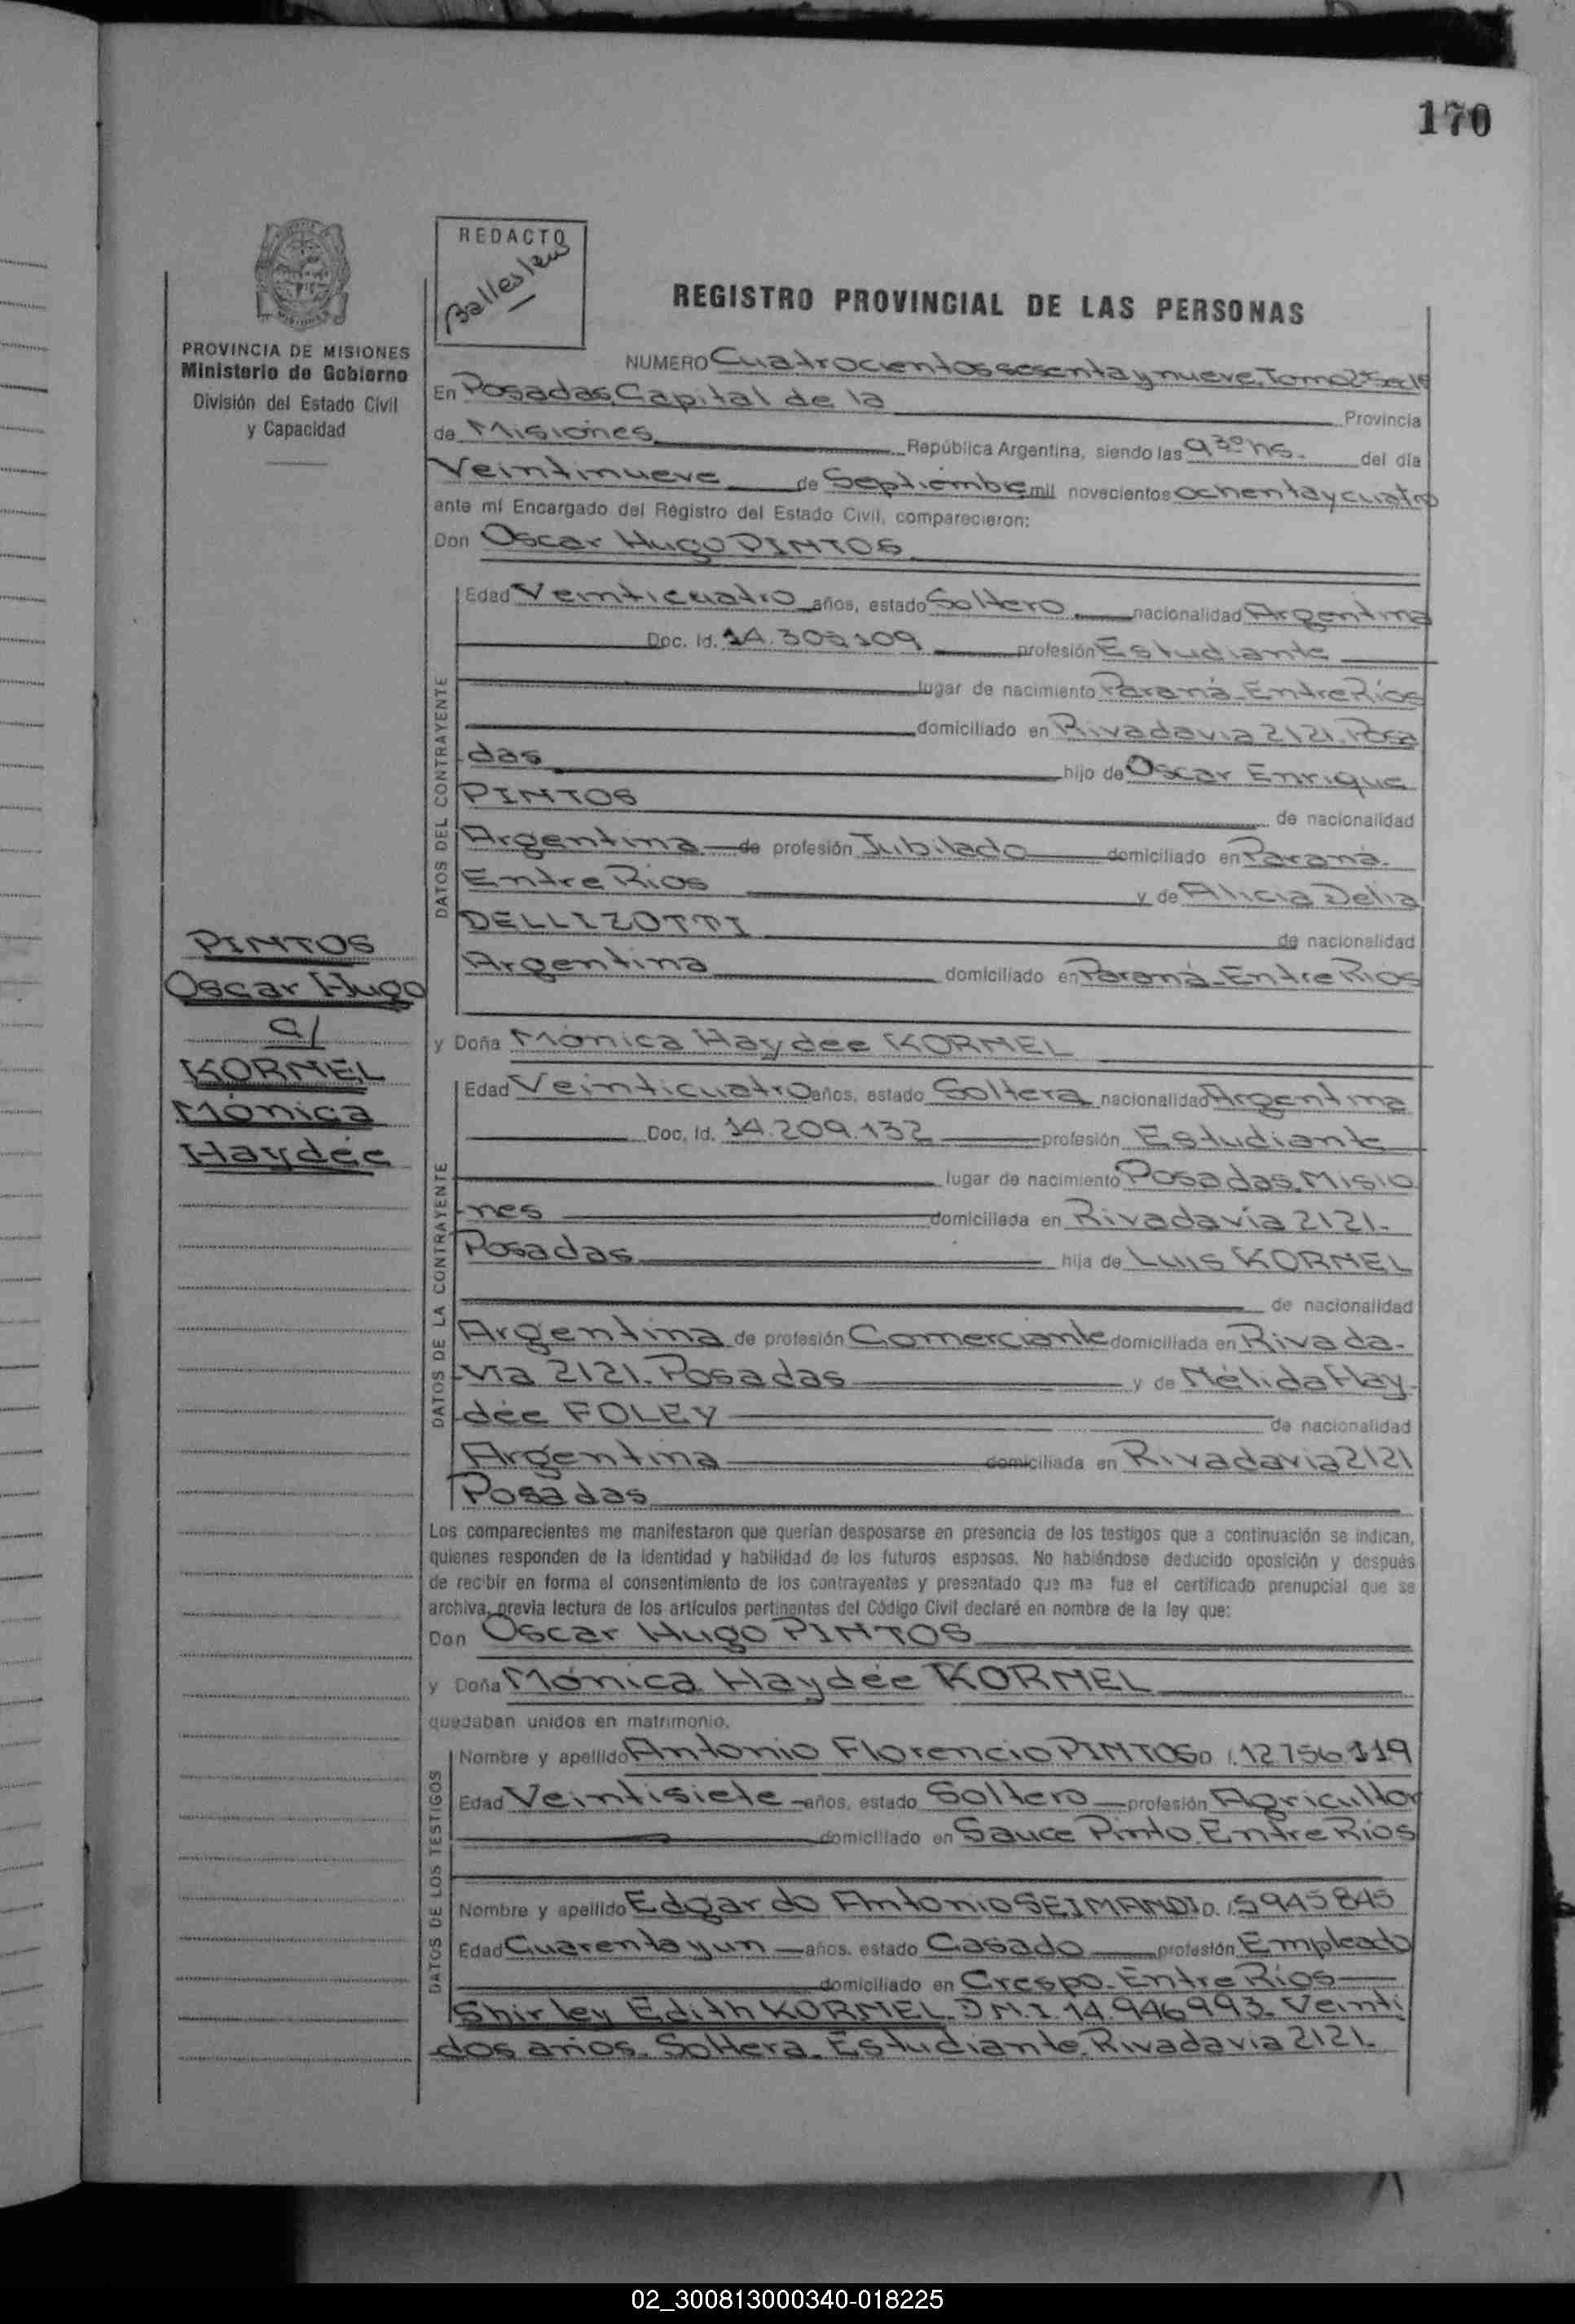 170
REDACTO
REGISTRO PROVINCIAL DE LAS PERSONAS
PROVINCIA DE MISIONES
Ministerio de Gobierno
División del Estado Civil
y Capacidad
NUMERO Cuatrocientos sesenta y nueve. Tomo 2º
En Posadas, Capital de la Provincia
de Misiones República Argentina, siendo las 9 30 hs. del día
Veintinueve de Septiembre mil novecientos ochenta y cuatro
ante mí Encargado del Registro del Estado Civil, comparecieron:
Don Oscar Hugo PINTOS
DATOS DEL CONTRAYENTE
Edad Veinticuatro años, estado Soltero nacionalidad Argentina
Doc. Id. profesión Estudiante
lugar de nacimiento Paraná-Entre Ríos
domiciliado en Rivadavia 2121. Posa
das hijo de Oscar Enrique
PINTOS de nacionalidad
Argentina de profesión Jubilado domiciliado en Paraná-
Entre Ríos y de Alicia Delia
DELLIZOTTI de nacionalidad
Argentina domiciliado en Paraná-Entre Ríos
PINTOS
Oscar Hugo
c/
KORNEL
Mónica
Haydée
y Doña Mónica Haydée KORNEL
DATOS DE LA CONTRAYENTE
Edad Veinticuatro años, estado Soltera nacionalidad Argentina
Doc. Id. 14.209.132 profesión Estudiante
lugar de nacimiento Posadas, Misio
nes domiciliada en Rivadavia 2121-
Posadas hija de Luis KORNEL
de nacionalidad
Argentina de profesión Comerciante domiciliada en Rivada-
via 2121. Posadas y de Nélida Hay-
dée FOLEY de nacionalidad
Argentina domiciliada en Rivadavia 2121
Posadas
Los comparecientes me manifestaron que querían desposarse en presencia de los testigos que a continuación se indican,
quienes responden de la identidad y habilidad de los futuros esposos. No habiéndose deducido oposición y después
de recibir en forma el consentimiento de los contrayentes y presentado que me fue el certificado prenupcial que se
archiva, previa lectura de los artículos pertinentes del Código Civil declaré en nombre de la ley que:
Don Oscar Hugo PINTOS
y Doña Mónica Haydée KORNEL
quedaban unidos en matrimonio.
DATOS DE LOS TESTIGOS
Nombre y apellido Antonio Florencio PINTOS D.I. 12756119
Edad Veintisiete años, estado Soltero profesión Agricultor
domiciliado en Sauce Pinto. Entre Ríos
Nombre y apellido Edgardo Antonio SEIMANDI D.I. 5945845
Edad Cuarenta y un años, estado Casado profesión Empleado
domiciliado en Crespo-Entre Ríos
Shirley Edith KORNEL. D.N.I. 14.946993. Veinti
dos años. Soltera. Estudiante. Rivadavia 2121.
02_300813000340-018225